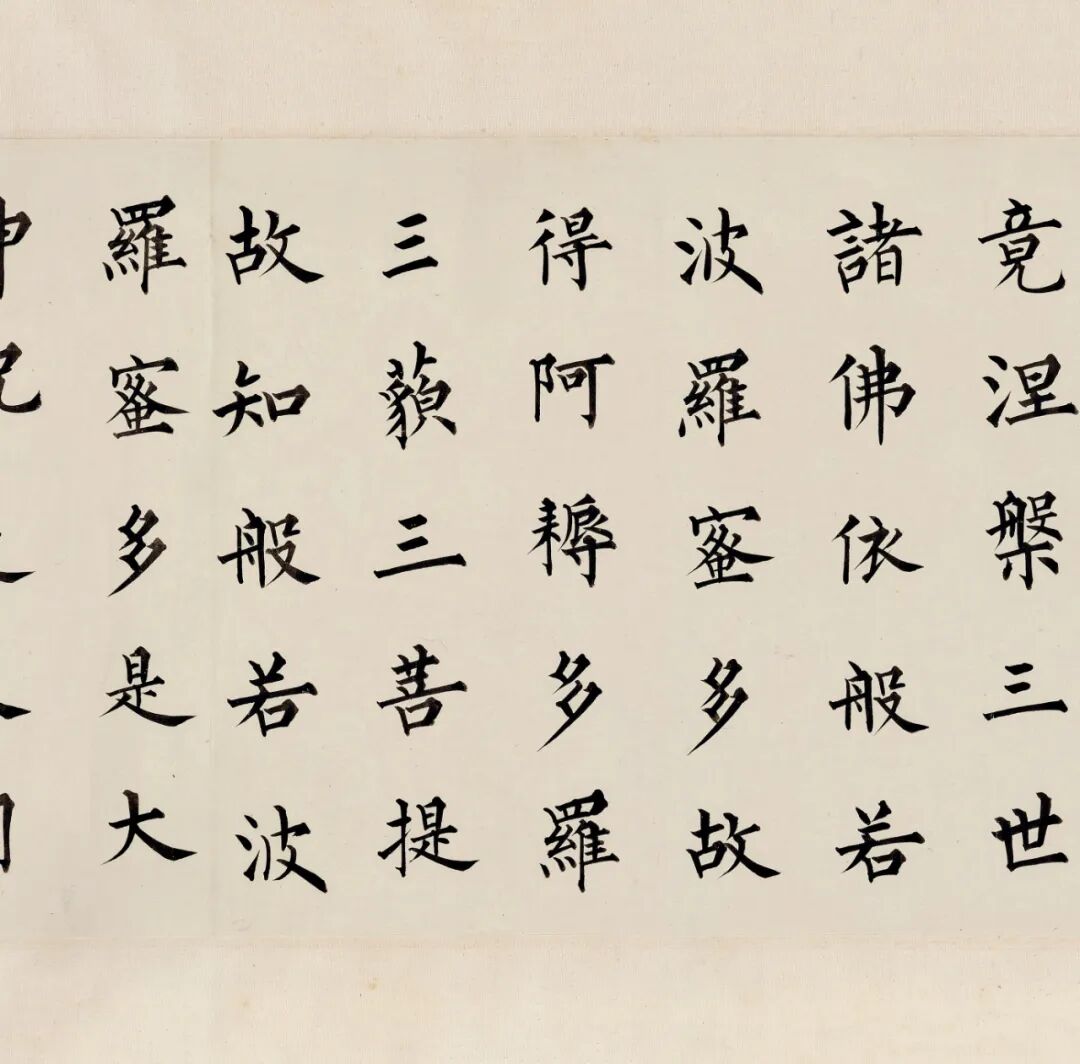 竟涅槃三世
諸佛依般若
波羅蜜多故
得阿耨多羅
三藐三菩提
故知般若波
羅蜜多是大